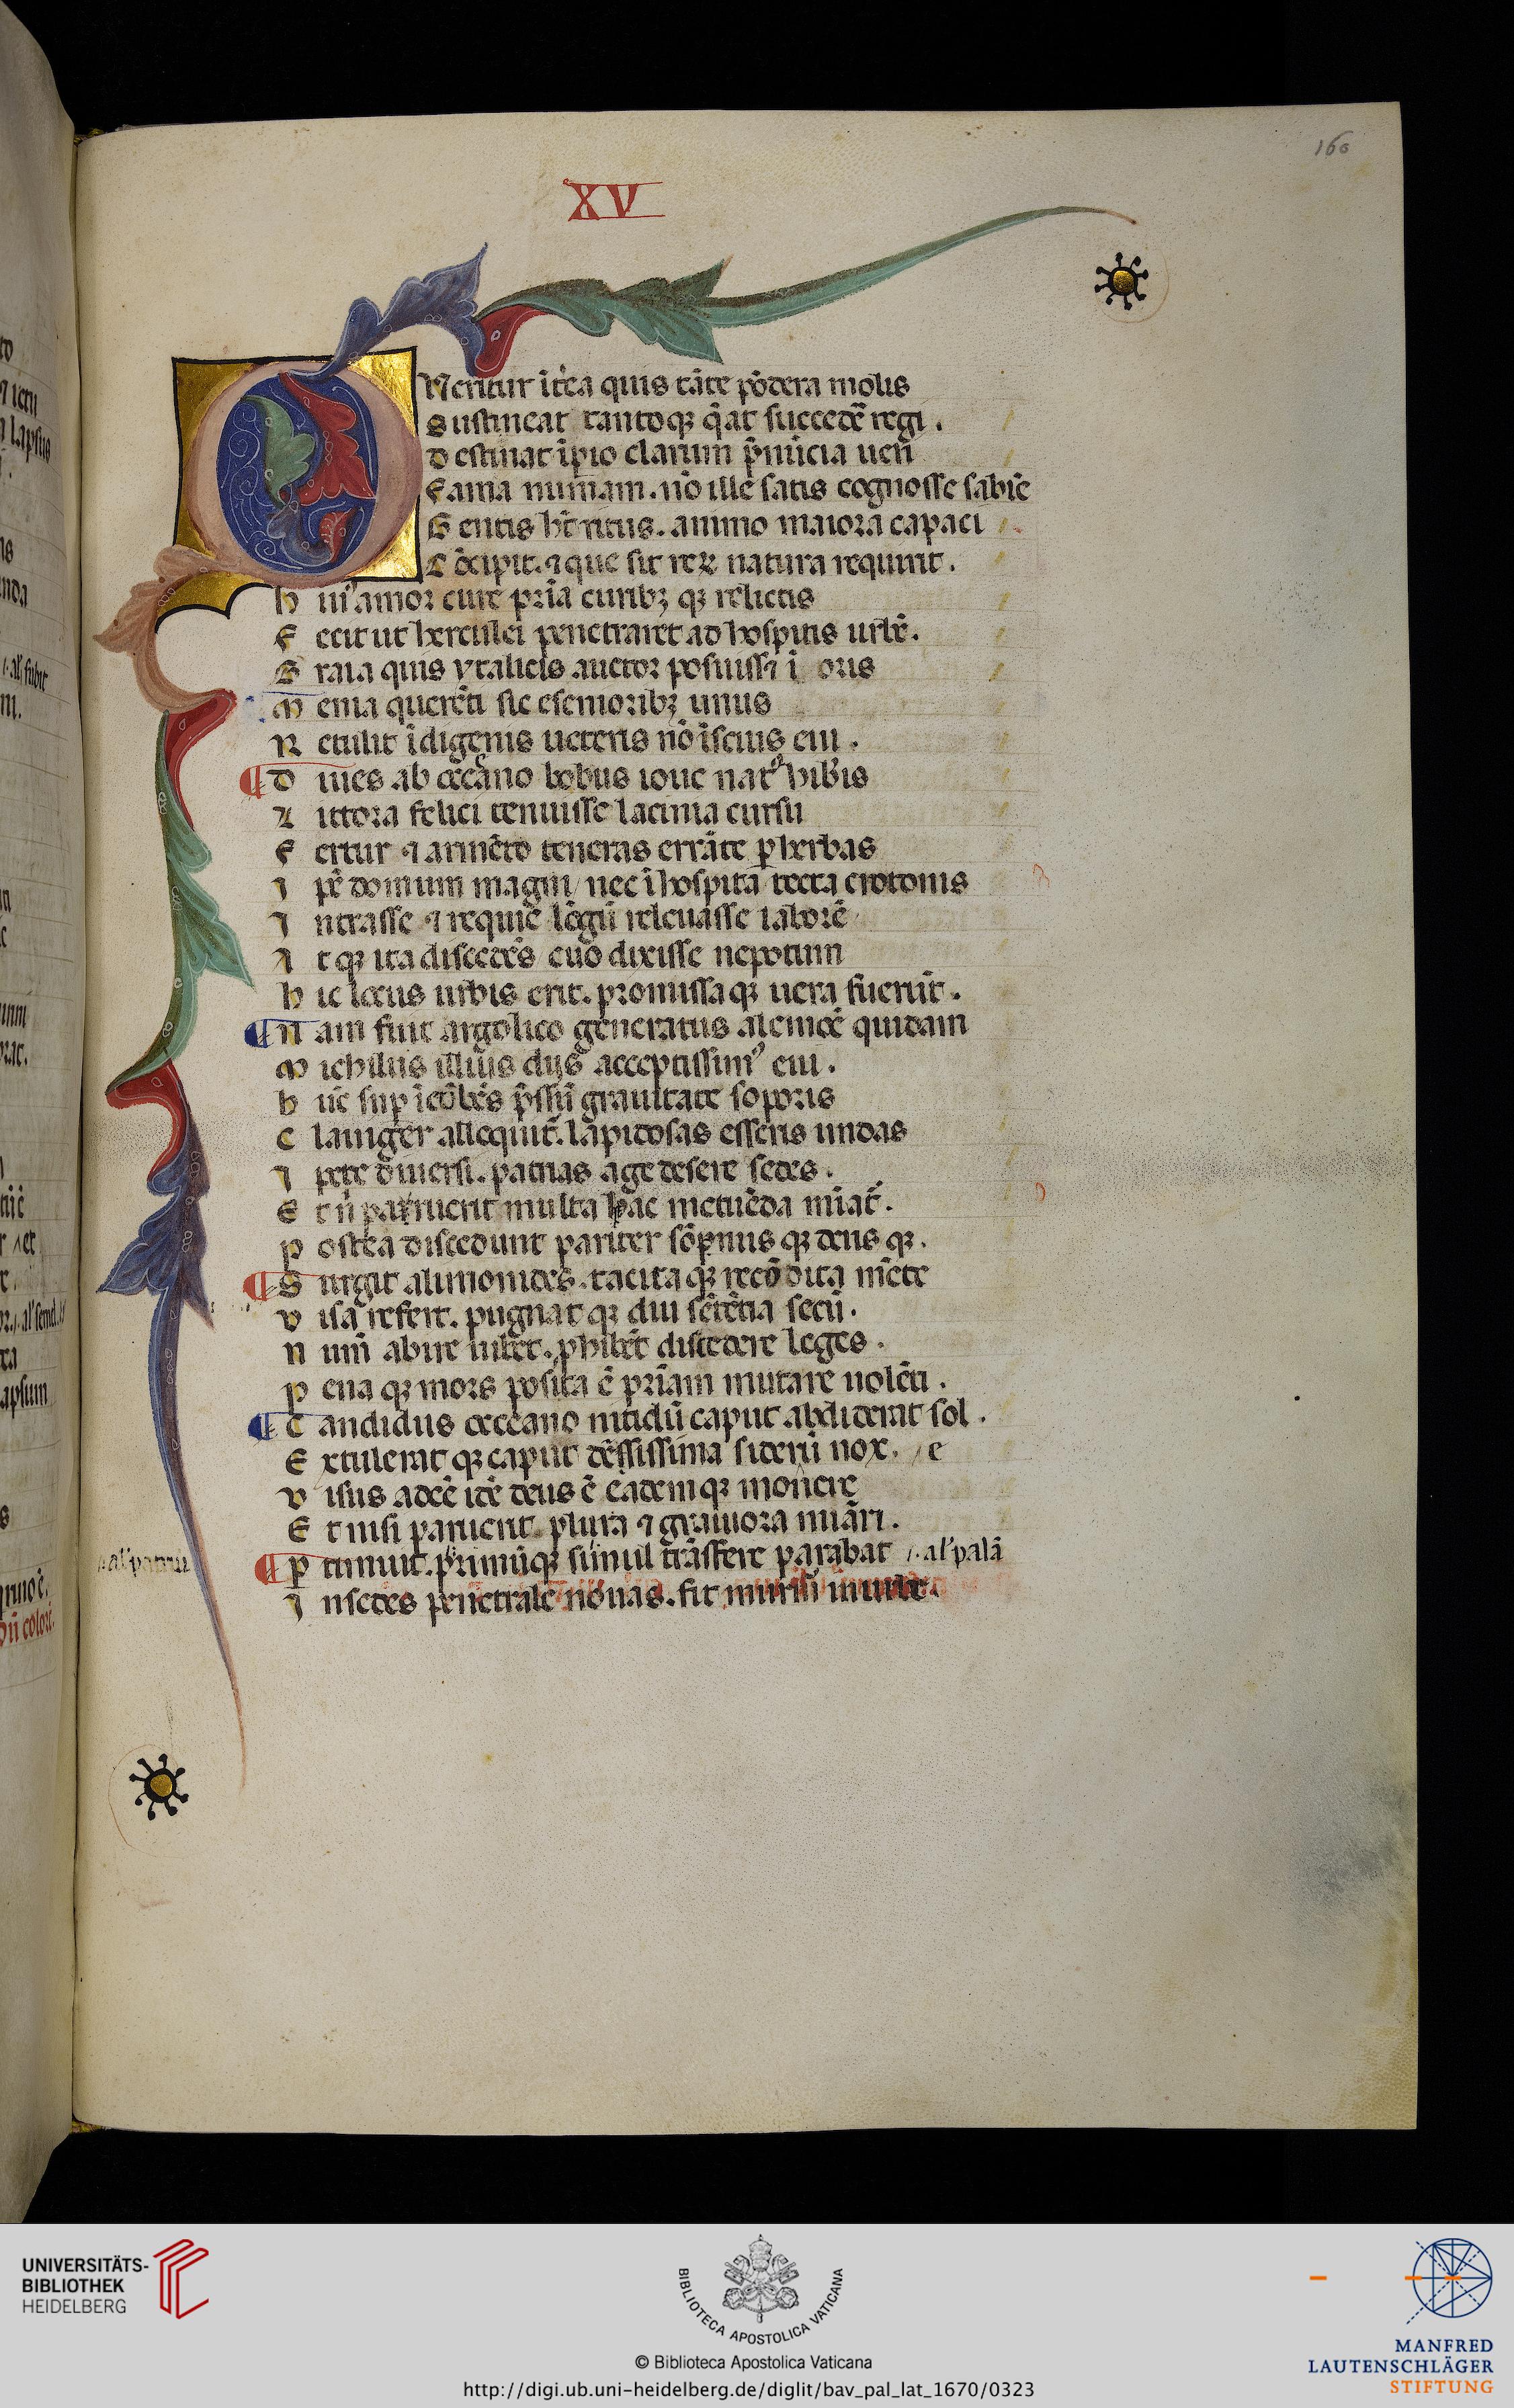 160
XV
QUeritur ĩt'ea quis tãte põdera molis
Sustineat tantoqꝫ q̃at succedẽ regi .
Destinat ĩpio clarum p̃nũcia ueri
Fama numam. nõ ille satis cognosse sabiē
Gentis h̃t ritus. animo maiora capaci
Cõcipit. ⁊ que sit reꝝ natura requirit .
hui' amor cure pria curibꝫ qꝫ relictis
Fecit ut herculei penetraret ad hospitis urbē.
Graia quis ytalicis auctor posuisset ĩ oris
Menia querēti sic e senioribꝫ unus
Retulit ĩdigenis ueteris nõ ĩscius eui .
Diues ab occeano bobus ioue nat' hib'is
Littora felici tenuisse lacinia cursu
Fertur ⁊ armēto teneras errãte p herbas
Ip̃e domum magni nec ĩhospita tecta crotonis
Intrasse ⁊ requiē lõgũ releuasse laborē
Atqꝫ ita discedēs euo dixisse nepotum
hic locus urbis erit. promissa qꝫ uera fuerũt .
Nam fuit argolico generatus alemoē quidam
Michilus illius dijs acceptissim' eui .
hũc sup ĩcũbēs p̃ssũ grauitate soporis
Clauiger alloquit̃. lapidosas esseris undas
I pete diuersi. patrias age desere sedes .
Et ñ parruerit multa hac metuēda miat̃ .
Postea discedunt pariter sõpnus qꝫ deus qꝫ .
Surgit alimonides. tacita qꝫ recõdita mēte
Visa refert. pugnat qꝫ diu sētētia secũ .
Num abire iubet. phibēt discedere leges .
Pena qꝫ mors posita ē priam mutare uolēti .
Candidus occeano nitidũ caput abdiderat sol .
Extulerat qꝫ caput dēssissima siderũ nox . e
Visus adeē idē deus ē eadem qꝫ monere
Et nisi paruerit plura ⁊ grauiora minari .
Ptimuit. primũqꝫ simul trãsfere parabat .al' palã
In sedes penetrale nouas. fit murmur in urbe.
UNIVERSITÄTS-
BIBLIOTHEK
HEIDELBERG
BIBLIOTECA APOSTOLICA VATICANA
© Biblioteca Apostolica Vaticana
http://digi.ub.uni-heidelberg.de/diglit/bav_pal_lat_1670/0323
MANFRED
LAUTENSCHLÄGER
STIFTUNG